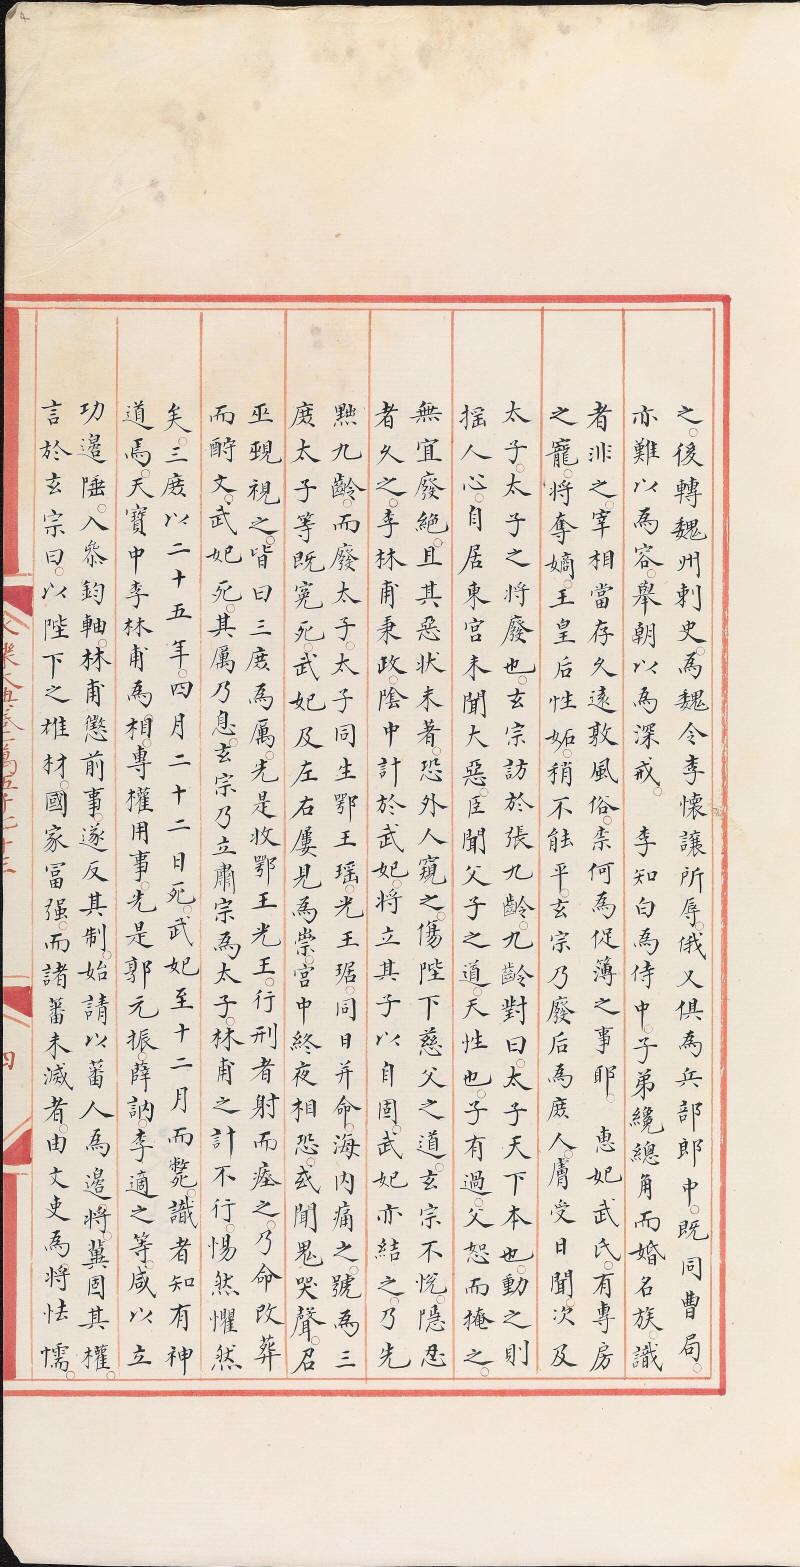 之。後轉魏州刺史。為魏令李懷讓所辱。俄又俱為兵部郎中。既同曹局。
亦難以為容。舉朝以為深戒。 李知白為侍中。子弟纔總角而婚名族。識
者非之。宰相當存久遠敦風俗。柰何為促薄之事耶。 惠妃武氏。有專房
之寵。將奪嫡。王皇后性妬。稍不能平。玄宗乃廢后為庶人。膚受日聞。次及
太子。太子之將廢也。玄宗訪於張九齡。九齡對曰。太子天下本也。動之則
揺人心。自居東宮未聞大惡。臣聞父子之道。天性也。子有過。父恕而掩之。
無宜廢絶。且其惡狀未著。恐外人窺之。傷陛下慈父之道。玄宗不悅。隱忍
者久之。李林甫秉政。陰中計於武妃。將立其子以自固。武妃亦結之。乃先
黜九齡。而廢太子。太子同生鄂王瑶。光王琚。同日并命。海内痛之。號為三
庶太子等既寃死。武妃及左右屢見為祟。宮中終夜相恐。或聞鬼哭聲。召
巫覡視之。皆曰三庶為厲。先是收鄂王光王。行刑者射而瘞之。乃命改葬
而酹文。武妃死。其厲乃息。玄宗乃立肅宗為太子。林甫之計不行。惕然懼然
矣。三庶以二十五年。四月二十二日死。武妃至十二月而斃。識者知有神
道焉。天寶中李林甫為相。專權用事。先是郭元振。薛訥。李適之等。咸以立
功邊陲。入叅鈞軸。林甫懲前事。遂反其制。始請以蕃人為邊將。冀固其權。
言於玄宗曰。以陛下之雄材。國家冨强。而諸蕃未滅者。由文吏為將怯懦。
四